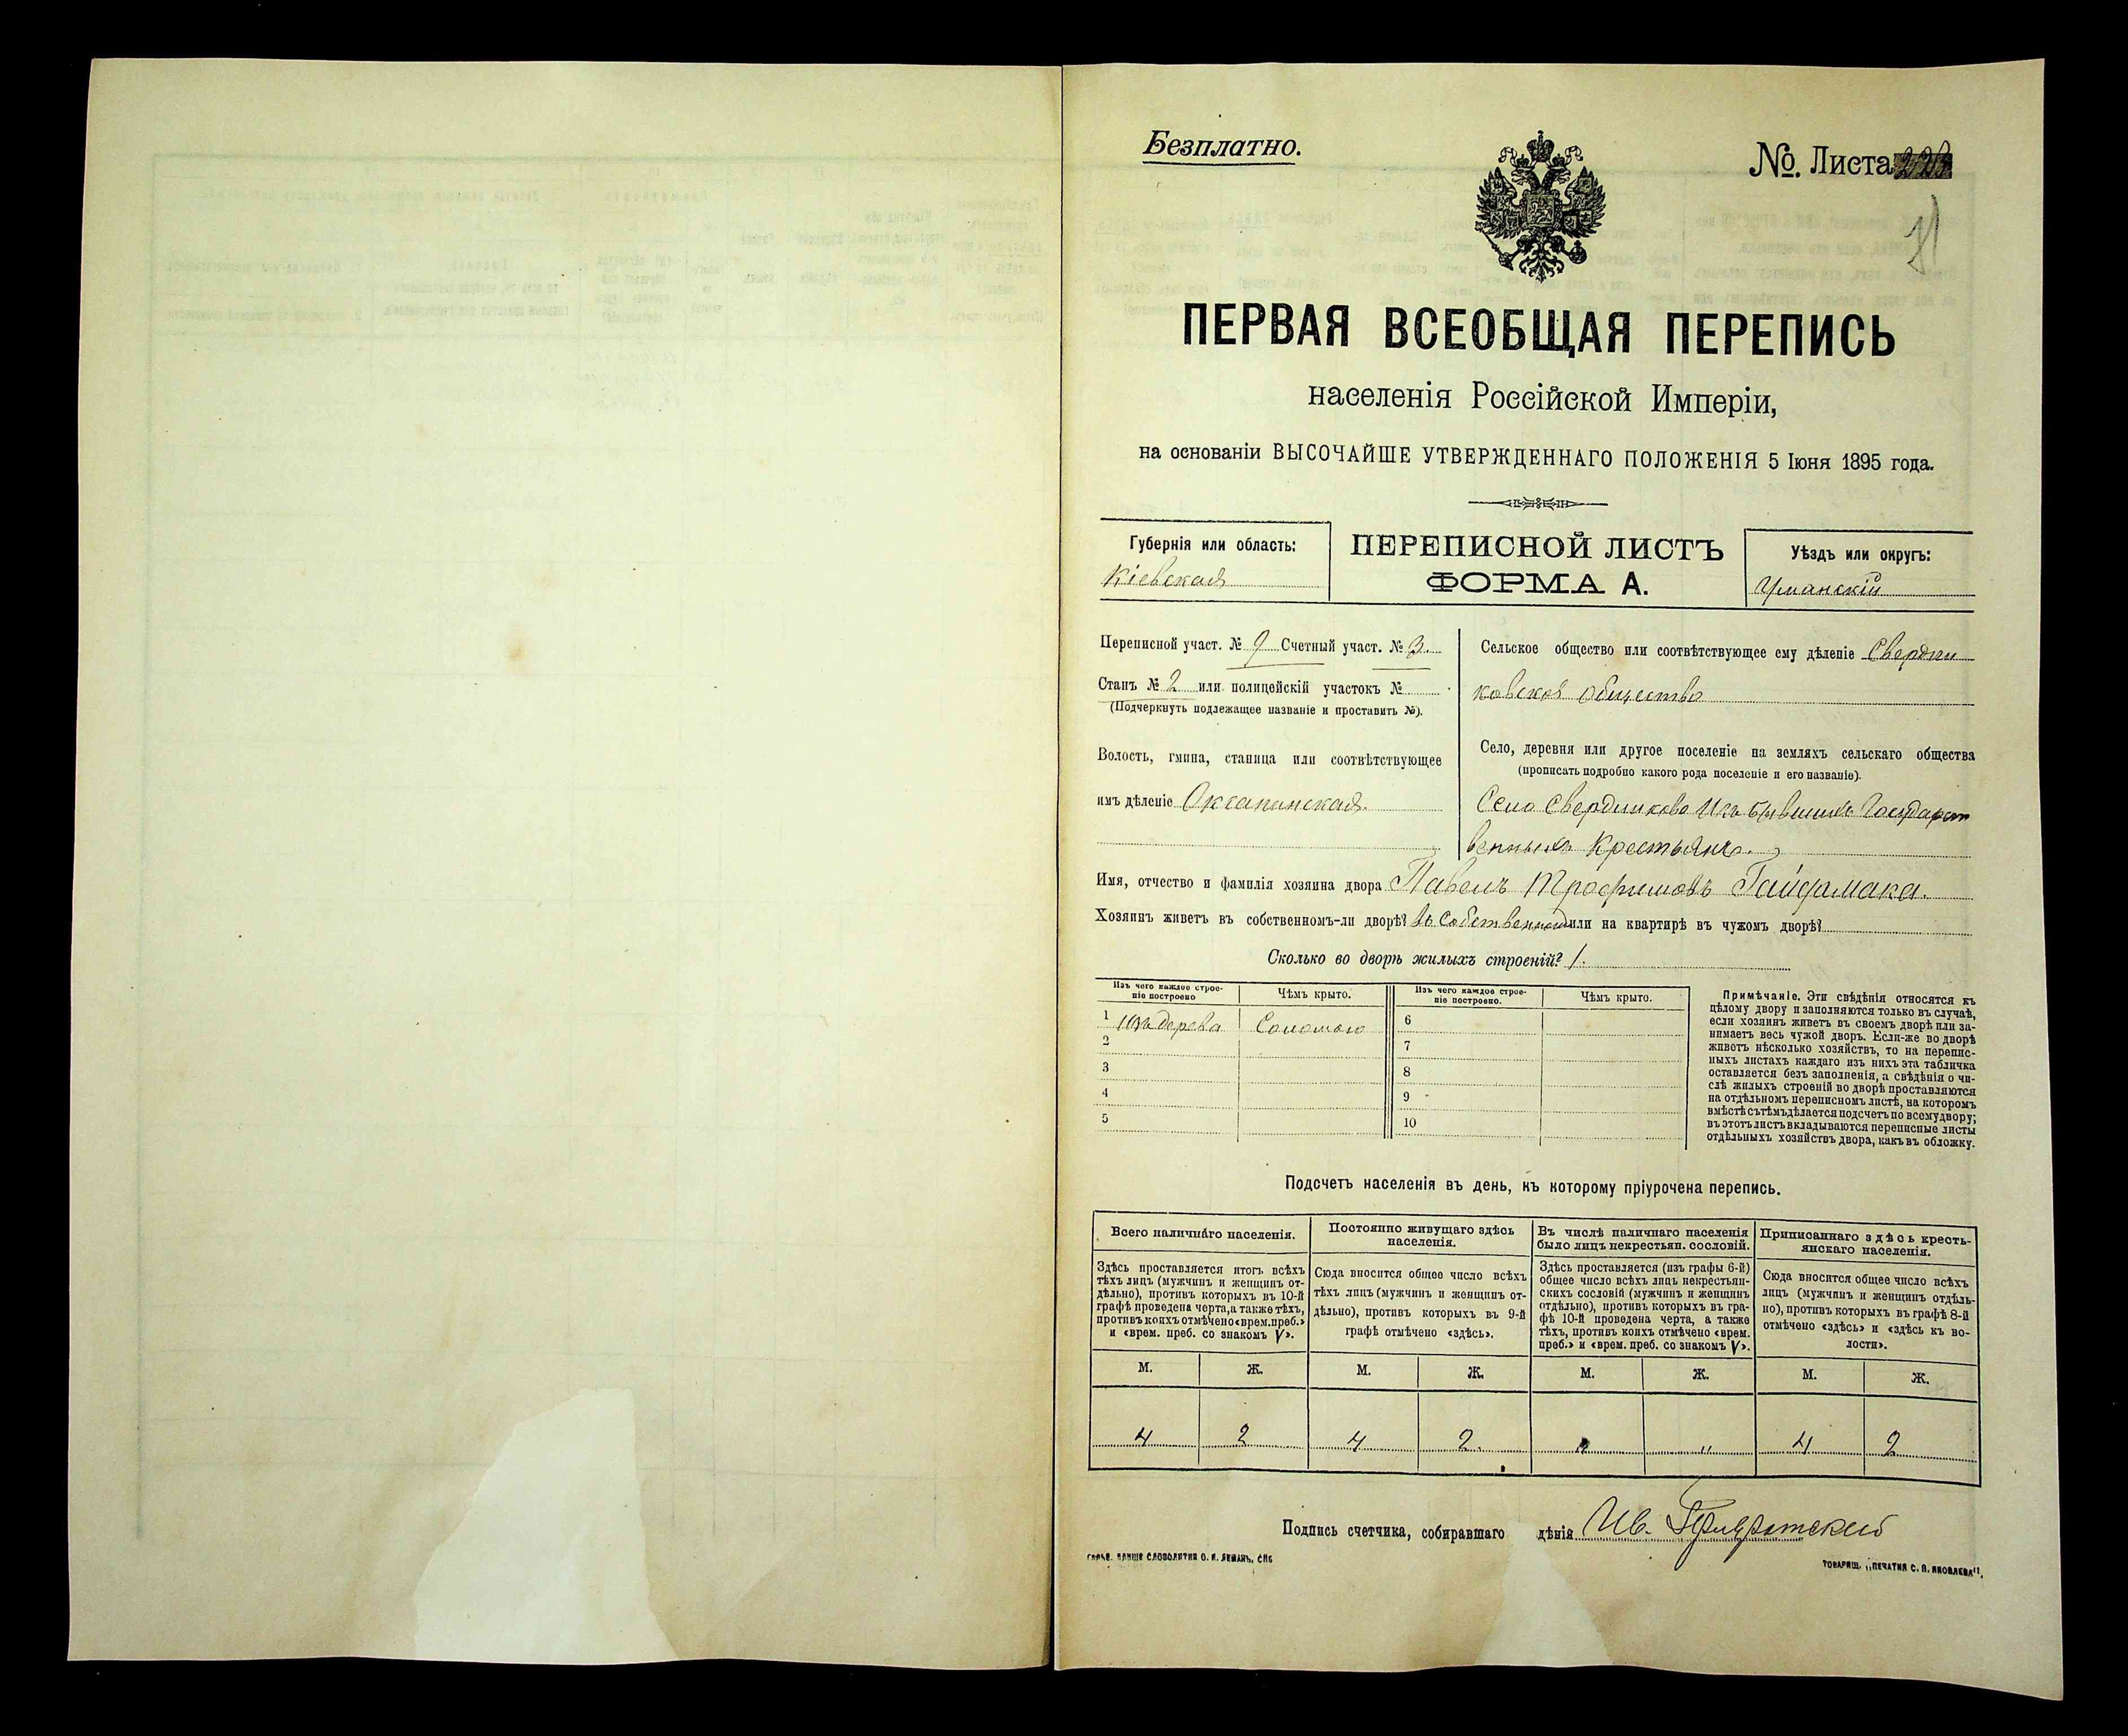 Безплатно.
№. Листа
ПЕРВАЯ ВСЕОБЩАЯ ПЕРЕПИСЬ
населенія Россійской Имперіи,
на основаніи ВЫСОЧАЙШЕ УТВЕРЖДЕННАГО ПОЛОЖЕНІЯ 5 Іюня 1895 года.
Губернія или область:
Кіевская
ПЕРЕПИСНОЙ ЛИСТЪ
ФОРМА А.
Уѣздъ или округъ:
Уманскій
Переписной участ. № 9 Счетный участ. № 3.
Станъ № 2 или полицейскій участокъ №
(Подчеркнуть подлежащее названіе и проставить №).
Волость, гмина, станица или соотвѣтствующее
имъ дѣленіе Оксанинская.
Сельское общество или соотвѣтствующее ему дѣленіе Свердли
ковское общество
Село, деревня или другое поселеніе на земляхъ сельскаго общества
(прописать подробно какого рода поселеніе и его названіе).
Село Свердликово Изъ бывшихъ Государст
венныхъ Крестьянъ.
Имя, отчество и фамилія хозяина двора Павелъ Трофимовъ Гайдамака.
Хозяинъ живетъ въ собственномъ-ли дворѣ? въ собственномъ или на квартирѣ въ чужомъ дворѣ?
Сколько во дворѣ жилыхъ строеній? 1.
Изъ чего каждое строе-
ніе построено
Чѣмъ крыто.
Изъ чего каждое строе-
ніе построено.
Чѣмъ крыто.
1 изъ дерева Соломою 6
2 7
3 8
4 9
5 10
Примѣчаніе. Эти свѣдѣнія относятся къ
цѣлому двору и заполняются только въ случаѣ,
если хозяинъ живетъ въ своемъ дворѣ или за-
нимаетъ весь чужой дворъ. Если-же во дворѣ
живетъ нѣсколько хозяйствъ, то на перепис-
ныхъ листахъ каждаго изъ нихъ эта табличка
оставляется безъ заполненія, а свѣдѣнія о чи-
слѣ жилыхъ строеній во дворѣ проставляются
на отдѣльномъ переписномъ листѣ, на которомъ
вмѣстѣ съ тѣмъ дѣлается подсчетъ по всему двору;
въ этотъ листъ вкладываются переписные листы
отдѣльныхъ хозяйствъ двора, какъ въ обложку.
Подсчетъ населенія въ день, къ которому пріурочена перепись.
Всего наличнаго населенія.
Здѣсь проставляется итогъ всѣхъ
тѣхъ лицъ (мужчинъ и женщинъ от-
дѣльно), противъ которыхъ въ 10-й
графѣ проведена черта, а также тѣхъ,
противъ коихъ отмѣчено «врем. преб.»
и «врем. преб. со знакомъ V».
Постоянно живущаго здѣсь
населенія.
Сюда вносится общее число всѣхъ
тѣхъ лицъ (мужчинъ и женщинъ от-
дѣльно), противъ которыхъ въ 9-й
графѣ отмѣчено «здѣсь».
Въ числѣ наличнаго населенія
было лицъ некрестьян. сословій.
Здѣсь проставляется (изъ графы 6-й)
общее число всѣхъ лицъ некрестьян-
скихъ сословій (мужчинъ и женщинъ
отдѣльно), противъ которыхъ въ гра-
фѣ 10-й проведена черта, а также
тѣхъ, противъ коихъ отмѣчено «врем.
преб.» и «врем. преб. со знакомъ V».
Приписаннаго здѣсь кресть-
янскаго населенія.
Сюда вносится общее число всѣхъ
лицъ (мужчинъ и женщинъ отдѣль-
но), противъ которыхъ въ графѣ 8-й
отмѣчено «здѣсь» и «здѣсь къ во-
лости».
М. Ж. М. Ж. М. Ж. М. Ж.
4 2 4 2. " 4 2
Подпись счетчика, собиравшаго дѣнія Ив.
ТОВАРИЩ. „ПЕЧАТНЯ С. П. ЯКОВЛЕВА".